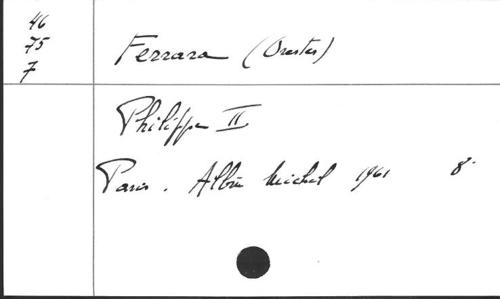 46
75
7
Ferrara (Orestes)
Philippe II
Paris. Albin Michel 1961 8°